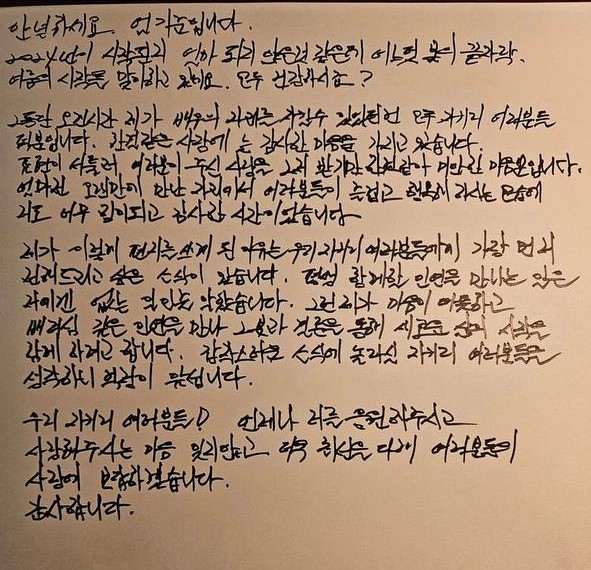 안녕하세요. 엄기준입니다.
2024년이 시작된지 얼마 되지 않은것 같은데 어느덧 봄의 끝자락.
여름의 시작을 맞이하고 있네요. 모두 건강하시죠?
그동안 오랜시간 제가 배우의 자리를 지킬수 있었던건 모두 자키리 여러분들
덕분입니다. 한결같은 사랑에 늘 감사한 마음을 가지고 있습니다.
표현이 서툴러 여러분이 주신 사랑을 그저 받기만 한것같아 미안한 마음뿐입니다.
얼마전 오랜만에 만난 자리에서 여러분들이 즐겁고 행복해 하시는 모습에
저도 너무 힘이되고 감사한 시간이었습니다
제가 이렇게 편지를 쓰게 된 이유는 우리 자키리 여러분들에게 가장 먼저
전해드리고 싶은 소식이 있습니다. 평생 함께할 인연을 만나는 일은
저에겐 없는 일인줄 알았습니다. 그런 제가 마음이 따뜻하고
배려심 깊은 인연을 만나 그분과 결혼을 통해 새로운 삶의 시작을
함께 하려고 합니다. 갑작스러운 소식에 놀라실 자키리 여러분들을
생각하니 떨립니다.
우리 자키리 여러분들! 언제나 저를 응원해주시고
사랑해주시는 마음 잊지않고 더욱 최선을 다해 여러분들의
사랑에 보답하겠습니다.
감사합니다.